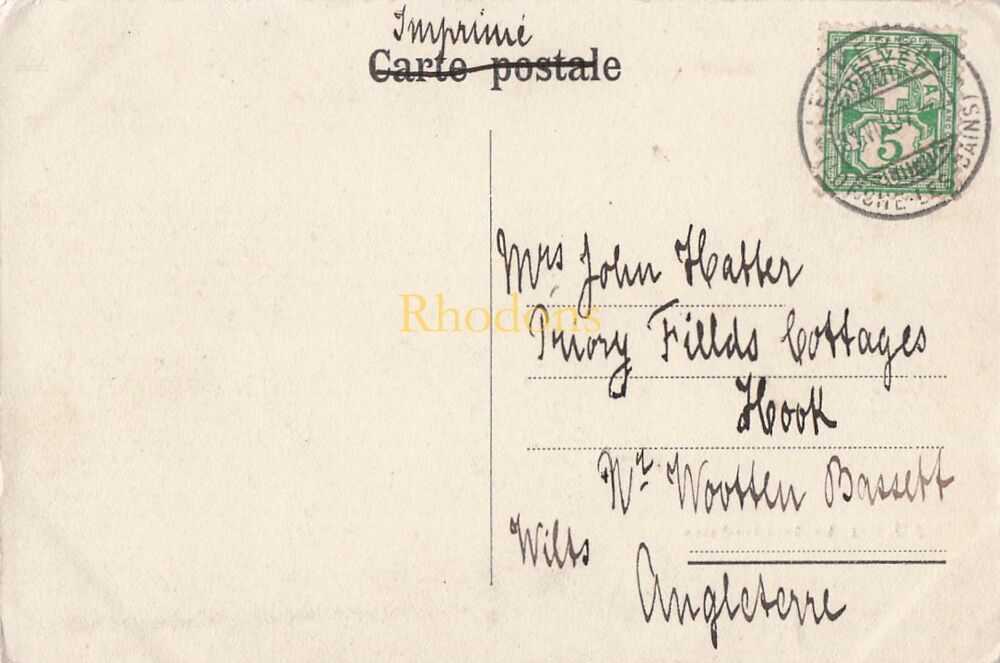 Imprimé
Carte postale
HELVETIA
5
Mrs John Hatter
Rhodons
Priory Fillds Cottages
Hook
Nr Wootten Bassett
Wilts
Angleterre